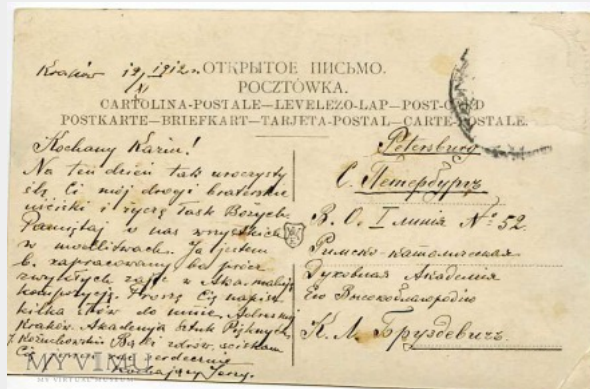 Kraków 19/XI 1912 r.
ОТКРЫТОЕ ПИСЬМО.
POCZTÓWKA.
CARTOLINA-POSTALE—LEVELEZO-LAP—POST-CARD
POSTKARTE—BRIEFKART—TARJETA-POSTAL—CARTE-POSTALE.
Kochany Kaziu!
Na ten dzień tak uroczysty
ślę Ci mój drogi braterskie
uściski i życzę łask Bożych.
Pamiętaj o nas wszystkich
w modlitwach. Ja jestem
b. zapracowany bo prócz
zwykłych zajęć w Aka. maluję
kompozycję. Proszę Cię napisz
kilka słów do mnie. Adresuj
Kraków. Akademja Sztuk Pięknych
J. Kozuchowski ściskam
Cię serdecznie
Kochający Jerzy.
Petersburg
С. Петербургъ
В. О. I линія № 52.
Римско-католическая
Духовная Академія
Его Высокоблагородію
К. Л. Бруздевичъ.
MYVIMU
MY VIRTUAL MUSEUM